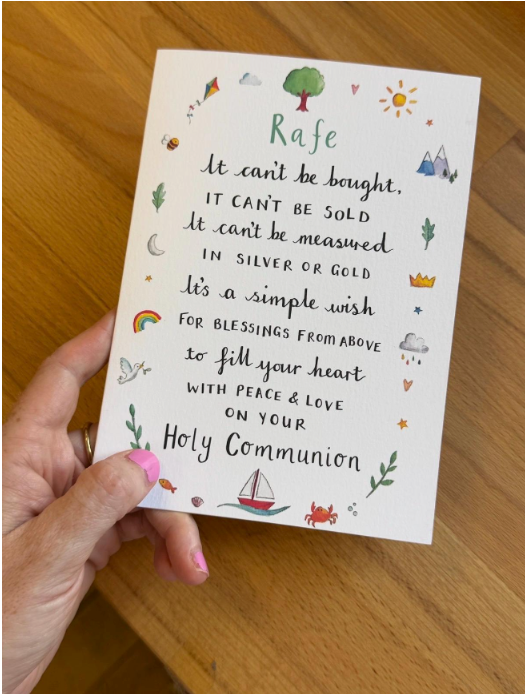 Rafe
It can't be bought,
IT CAN'T BE SOLD
It can't be measured
IN SILVER OR GOLD
It's a simple wish
FOR BLESSINGS FROM ABOVE
to fill your heart
WITH PEACE & LOVE
ON YOUR
Holy Communion